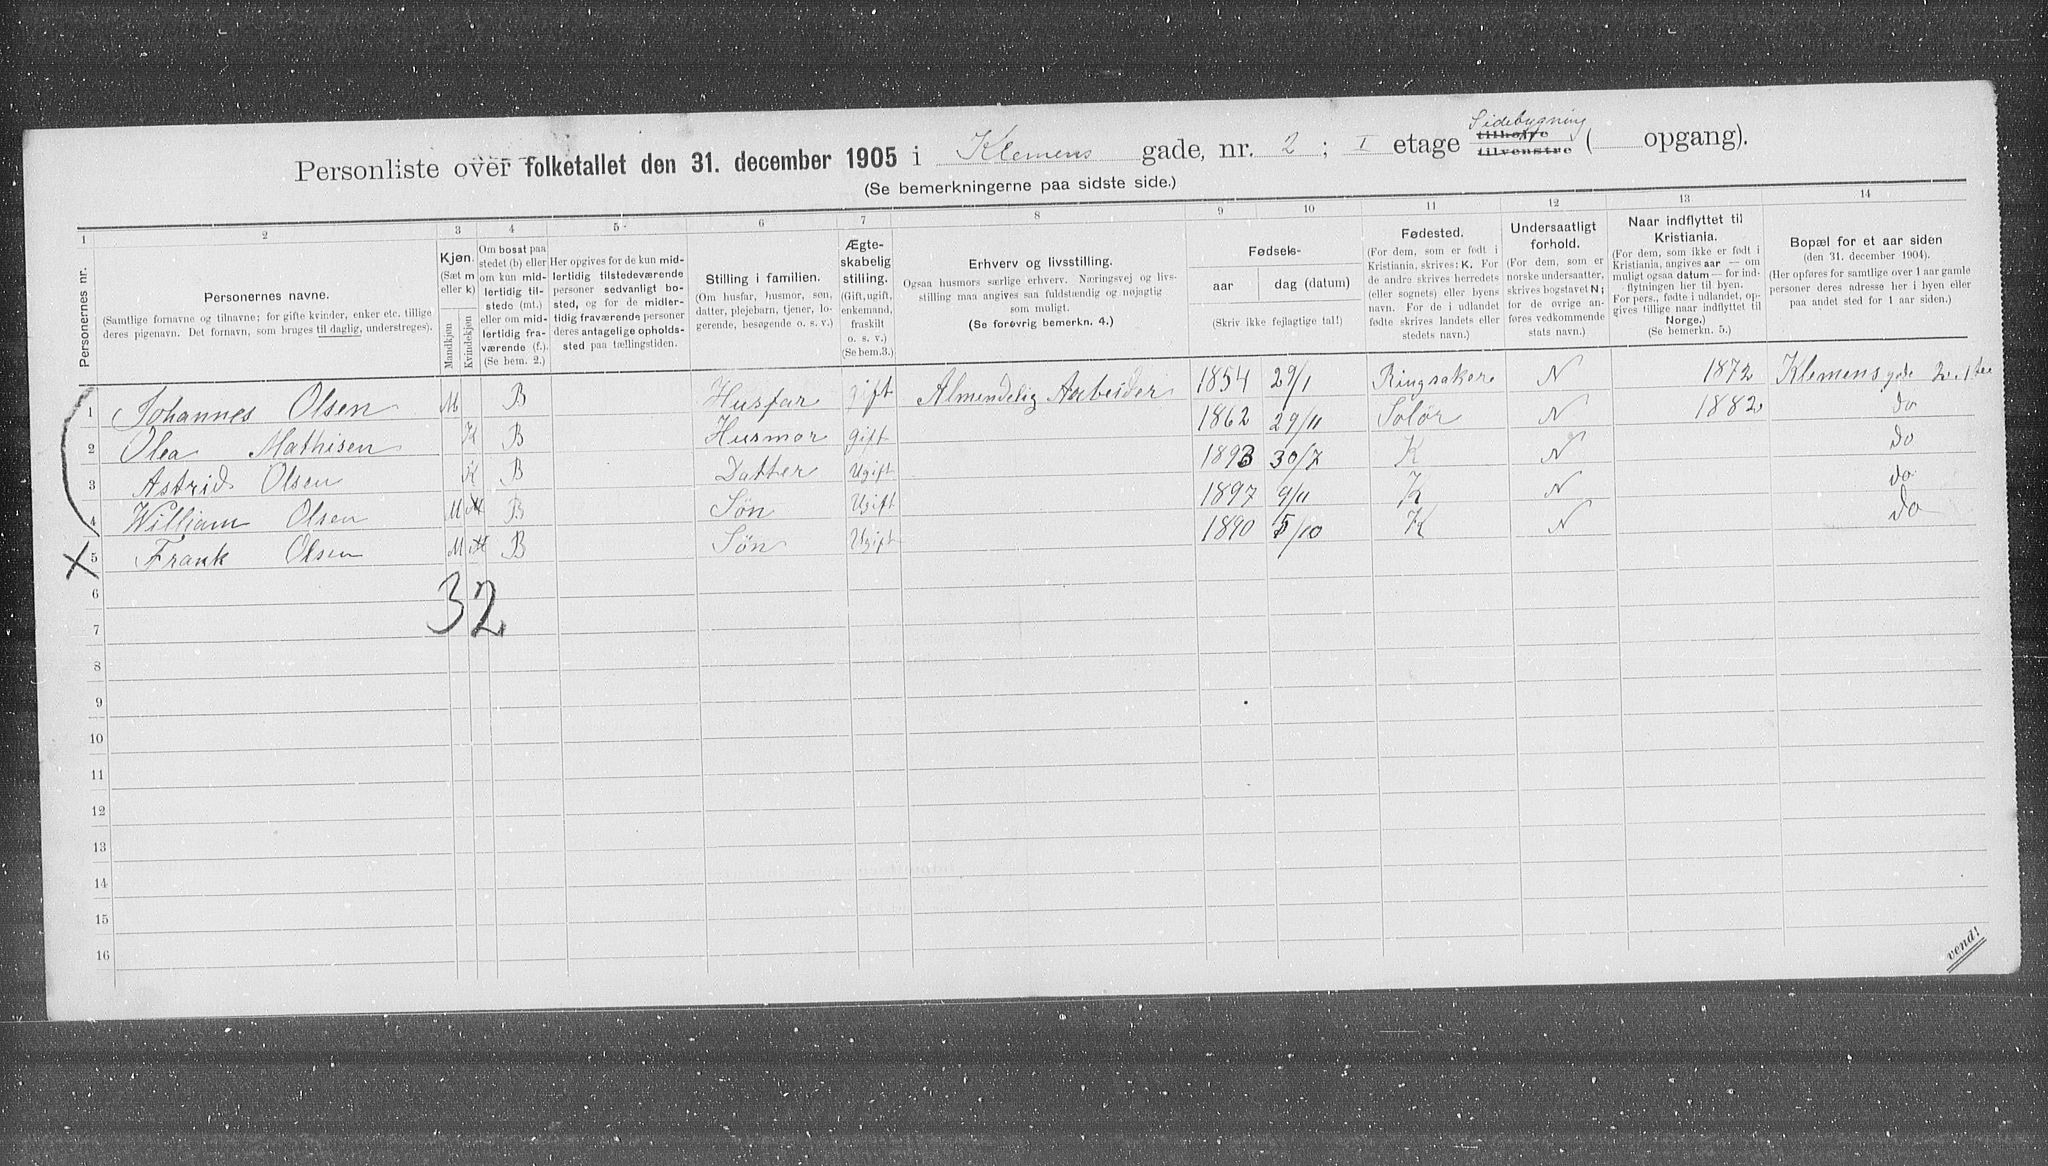 Personliste over folketallet den 31. december 1905 i Klemens gade, nr. 2 ; I etage Sidebygning tilhøjre tilvenstre ( opgang).
(Se bemerkningerne paa sidste side.)
1 2 3 4 5 6 7 8 9 10 11 12 13 14
Personernes nr.
Personernes navne.
(Samtlige fornavne og tilnavne; for gifte kvinder, enker etc. tillige deres pigenavn. Det fornavn, som bruges til daglig, understreges).
Kjøn.
(Sæt m eller k)
Mandkjøn
Kvindekjøn
Om bosat paa stedet (b) eller om kun midlertidig tilstede (mt.) eller om midlertidig fraværende (f.).
(Se bem. 2.)
Her opgives for de kun midlertidig tilstedeværende personer sedvanligt bosted, og for de midlertidig fraværende personer deres antagelige opholdssted paa tællingstiden.
Stilling i familien.
(Om husfar, husmor, søn, datter, plejebarn, tjener, logerende, besøgende o. s. v.)
Ægteskabelig stilling.
(Gift, ugift, enkemand, fraskilt o. s. v.)
(Se bem.3.)
Erhverv og livsstilling.
Ogsaa husmors særlige erhverv. Næringsvej og livsstilling maa angives saa fuldstændig og nøjagtig som muligt.
(Se forøvrig bemerkn. 4.)
Fødsels-
aar dag (datum)
(Skriv ikke fejlagtige tal!)
Fødested.
(For dem, som er født i Kristiania, skrives: K. For de andre skrives herredets (eller sognets) eller byens navn. For de i udlandet fødte skrives landets eller stedets navn.)
Undersaatligt forhold.
(For dem, som er norske undersaatter, skrives bogstavet N; for de øvrige anføres vedkommende stats navn.)
Naar indflyttet til Kristiania.
(For dem, som ikke er født i Kristiania, angives aar — om muligt ogsaa datum — for indflytningen her til byen. For pers., fødte i udlandet, opgives tillige naar indflyttet til Norge.)
(Se bemerkn. 5.)
Bopæl for et aar siden
(den 31. december 1904).
(Her opføres for samtlige over 1 aar gamle personer deres adresse her i byen eller paa andet sted for 1 aar siden.)
1 Johannes Olsen M B Husfar gift Almendelig Arbeider 1854 29/1 Ringsaker N 1872 Klemensgade 2
2 Olea Mathisen K B Husmor gift 1862 29/11 Solør N 1882 do
3 Astrid Olsen K B Datter Ugift 1893 30/7 K N do
4 William Olsen M B Søn Ugift 1897 9/11 K N do
X 5 Frank Olsen M B Søn Ugift 1890 5/10 K N do
32
6
7
8
9
10
11
12
13
14
15
16
vend!